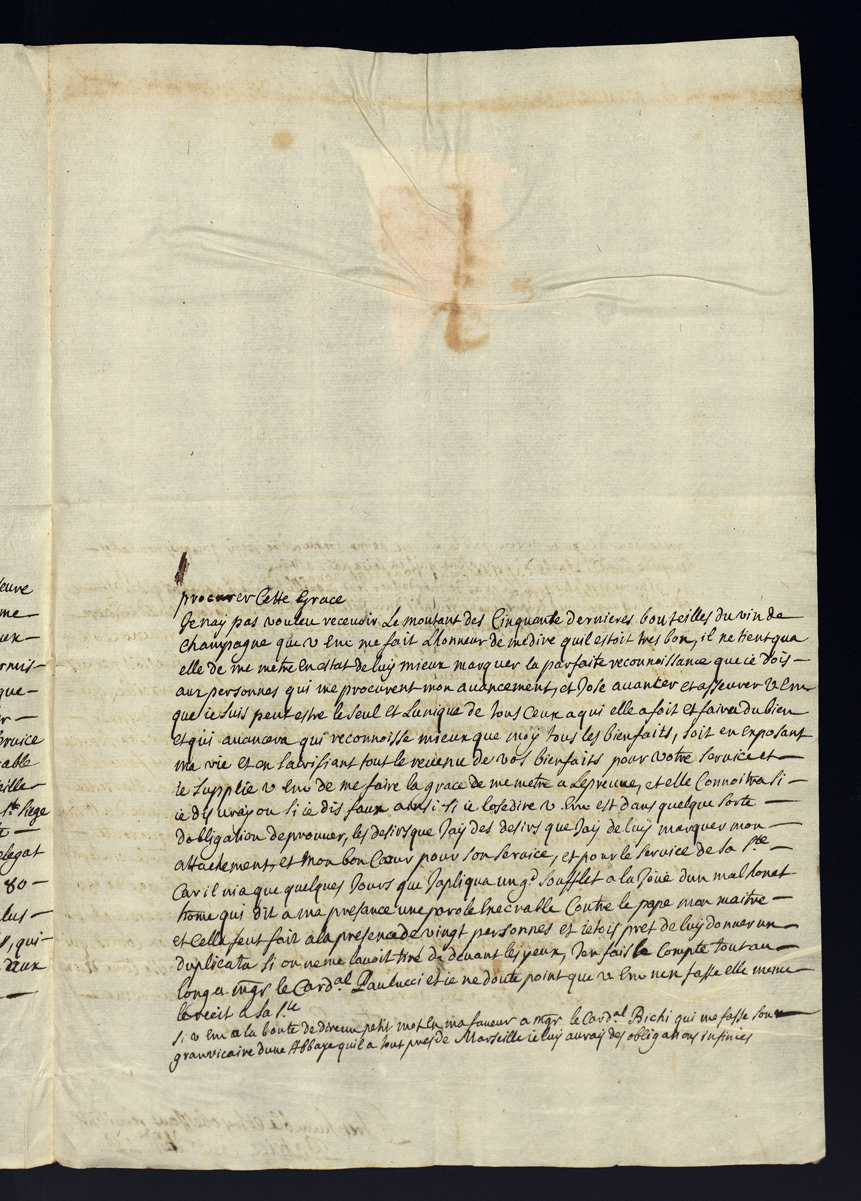 euve
me-
ux-
rmis-
que-
r-
ervice
able
eille-
Ste Siege
te-
elegat
80-
lus-
s, qui-
d'aux
procurer Cette Grace
Je nay pas vouleu recevoir Le montant des Cinquante dernieres bouteilles du vin de
Champagne que v Emc me fait Lhonneur de me dire quil estoit tres bon, il ne tient qua
elle de me metre En Estat de luy mieux marquer la parfaite reconnoissance que ie dois-
aux personnes qui me procurent mon avancement, et J'ose avancer et asseurer v Emc
que ie suis peut estre le seul et Lunique de tous Ceux a qui elle a fait et faira du bien
et qui avancera qui reconnoisse mieux que moÿ tous les bienfaits, soit en Exposant
ma vie et en sacrifiant tout le revenu de vos bienfaits pour votre service et-
ie supplie v Emc de me faire la grace de me metre a Lepreuve, et elle Connoitra si-
ie dis vray ou si ie dis faux ainsi si ie lose dire v Emc est dans quelque sorte-
dobligation de prouver, les desirs que Jaÿ des desirs que Jaÿ de luÿ marquer mon-
attachement, et mon bon Cœur pour son service, et pour le service de sa Ste-
Car il nia que quelques Jours que Japliqua un gd soufflet a la Joüe dun mal honet
home qui dit a ma presance une parole Execrable Contre le pape mon maitre-
et Cella feut fait a la presence de vingt personnes et ietois pret de luÿ donner un-
duplicata si on ne me lavoit tiré de devant les yeux, J'en fais le Compte tout au-
long a mgr le Cardal Paulucci et ie ne doute point que v Emc nen fasse elle meme-
le recit a sa Ste
si v Emc a la bonte de dire un petit mot En ma faveur a mgr le Cardal Bichi qui me fasse son-
granvicaire dune Abbaye quil a tout pres de Marseille ie luÿ auraÿ des obligations infinies